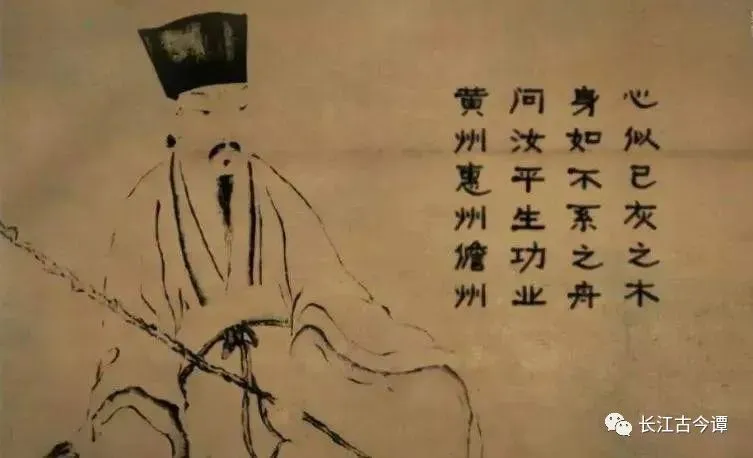 心似已灰之木
身如不系之舟
问汝平生功业
黄州惠州儋州
长江古今谭